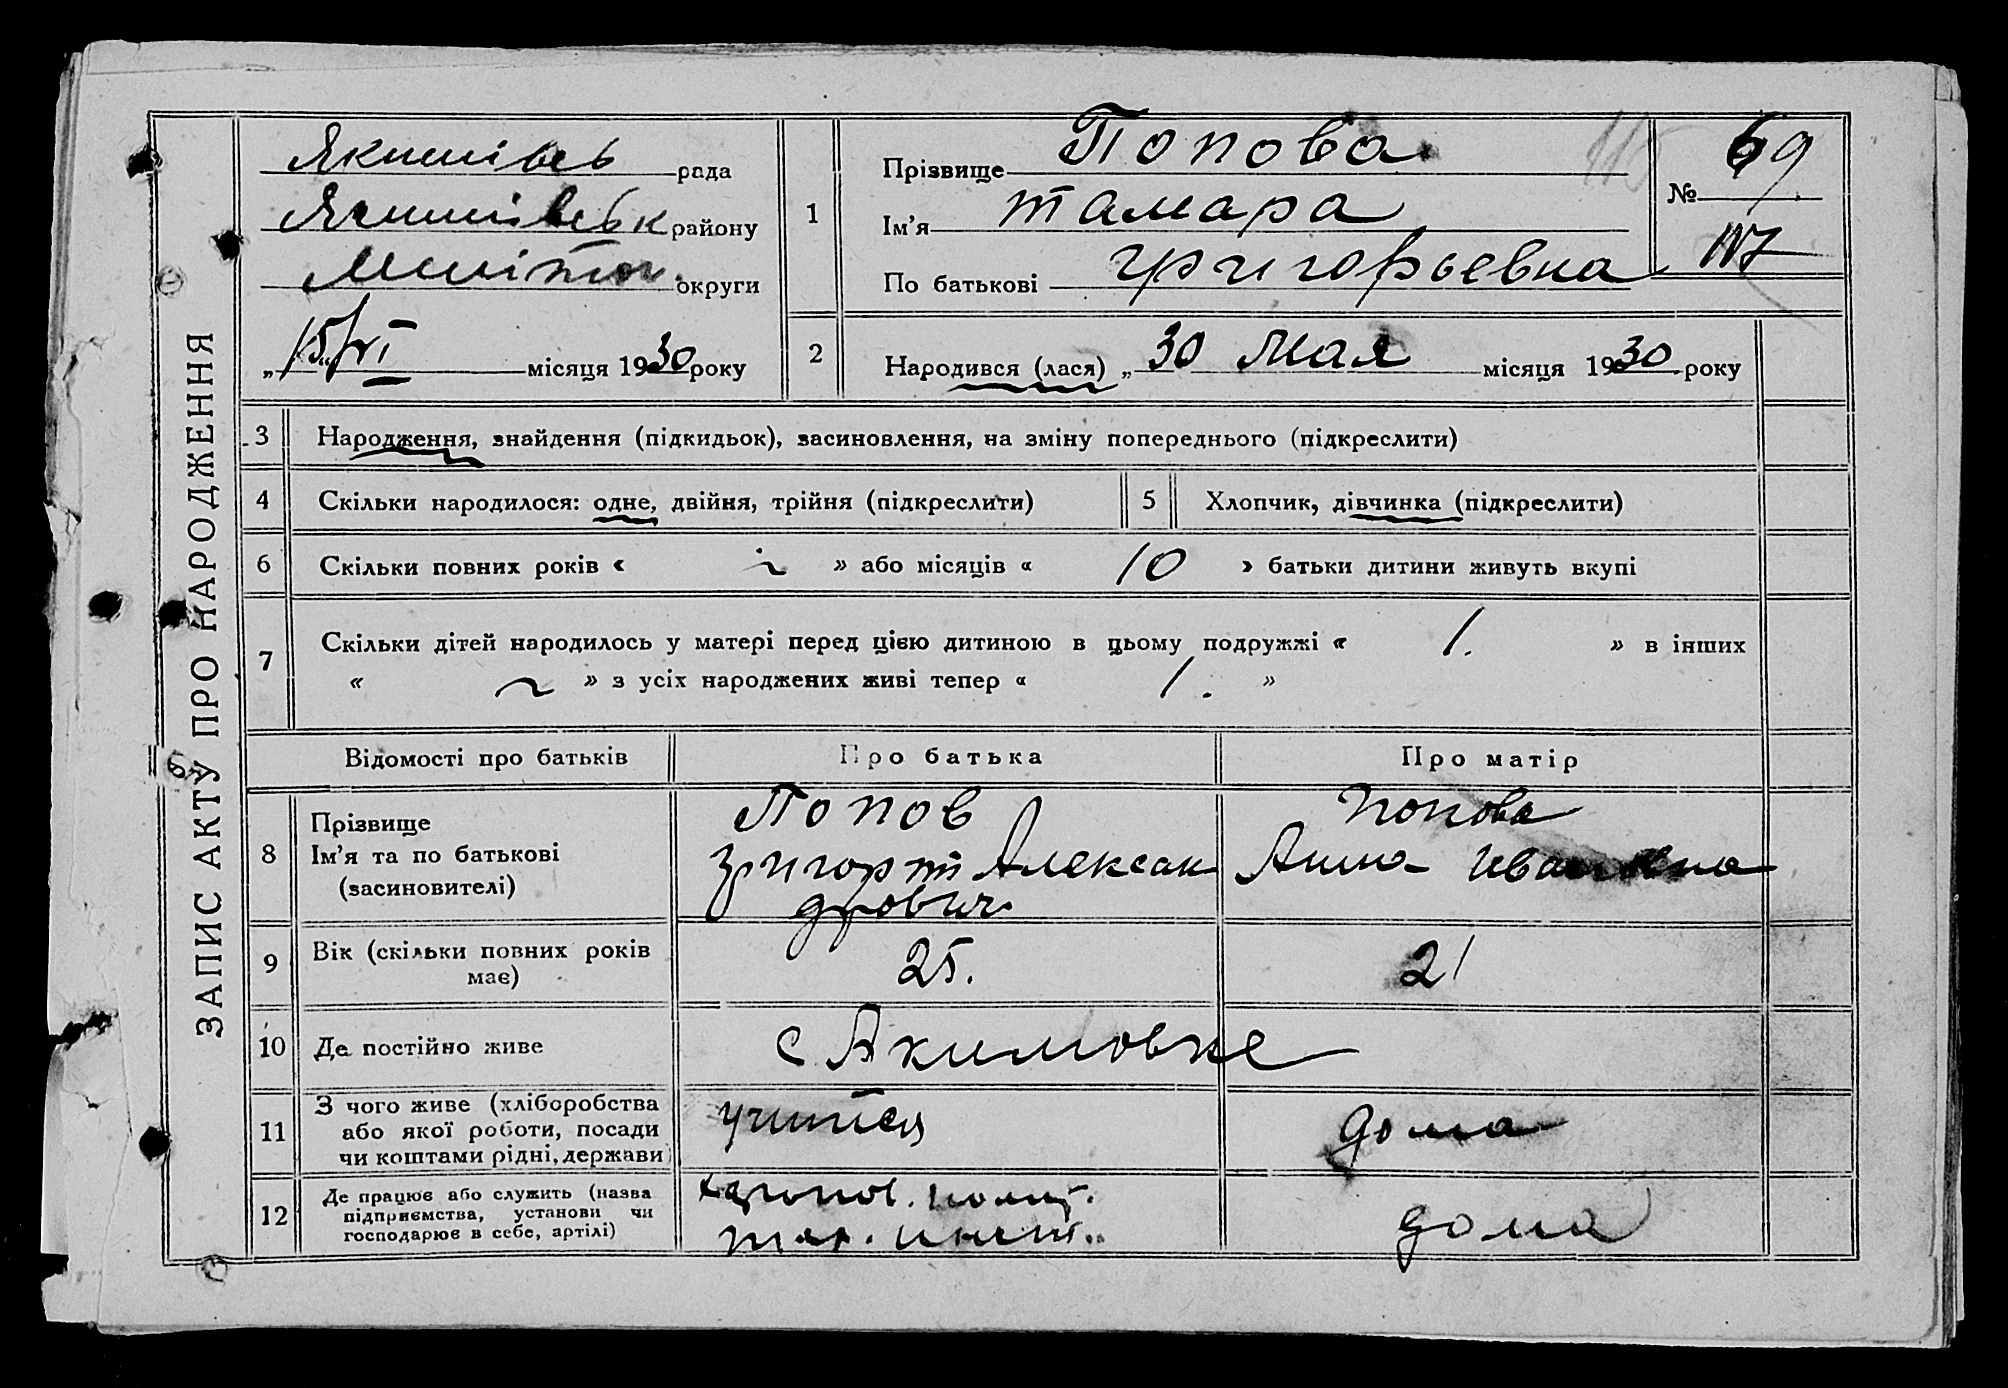 ЗАПИС АКТУ ПРО НАРОДЖЕННЯ
Якимівсь рада
Якимівськ району
Меліто округи
„15/VI місяця 1930 року
1
Прізвище Попова
Ім’я Тамара
По батькові Григорьевна
115
№ 69
117
2
Народився (лася) „30 Мая місяця 1930 року
3 Народження, знайдення (підкидьок), засиновлення, на зміну попереднього (підкреслити)
4 Скільки народилося: одне, двійня, трійня (підкреслити)
5 Хлопчик, дівчинка (підкреслити)
6 Скільки повних років « ~ » або місяців « 10 » батьки дитини живуть вкупі
7 Скільки дітей народилось у матері перед цією дитиною в цьому подружжі « 1. » в інших
« ~ » з усіх народжених живі тепер « 1. »
Відомості про батьків Про батька Про матір
8
Прізвище
Ім’я та по батькові
(засиновителі)
Попов
Григорт Алексан
дрович.
Попова
Анна Ивановна
9
Вік (скільки повних років
має)
25.
21
10 Де постійно живе
с Акимовке
11
З чого живе (хліборобства
або якої роботи, посади
чи коштами рідні, держави)
учится
дома
12
Де працює або служить (назва
підприємства, установи чи
господарює в себе, артілі)
инст.
дома